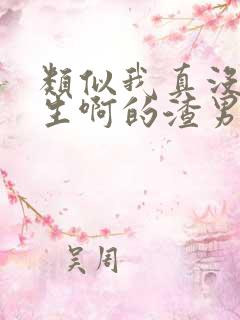 類似我真沒
生啊的渣男
吴周